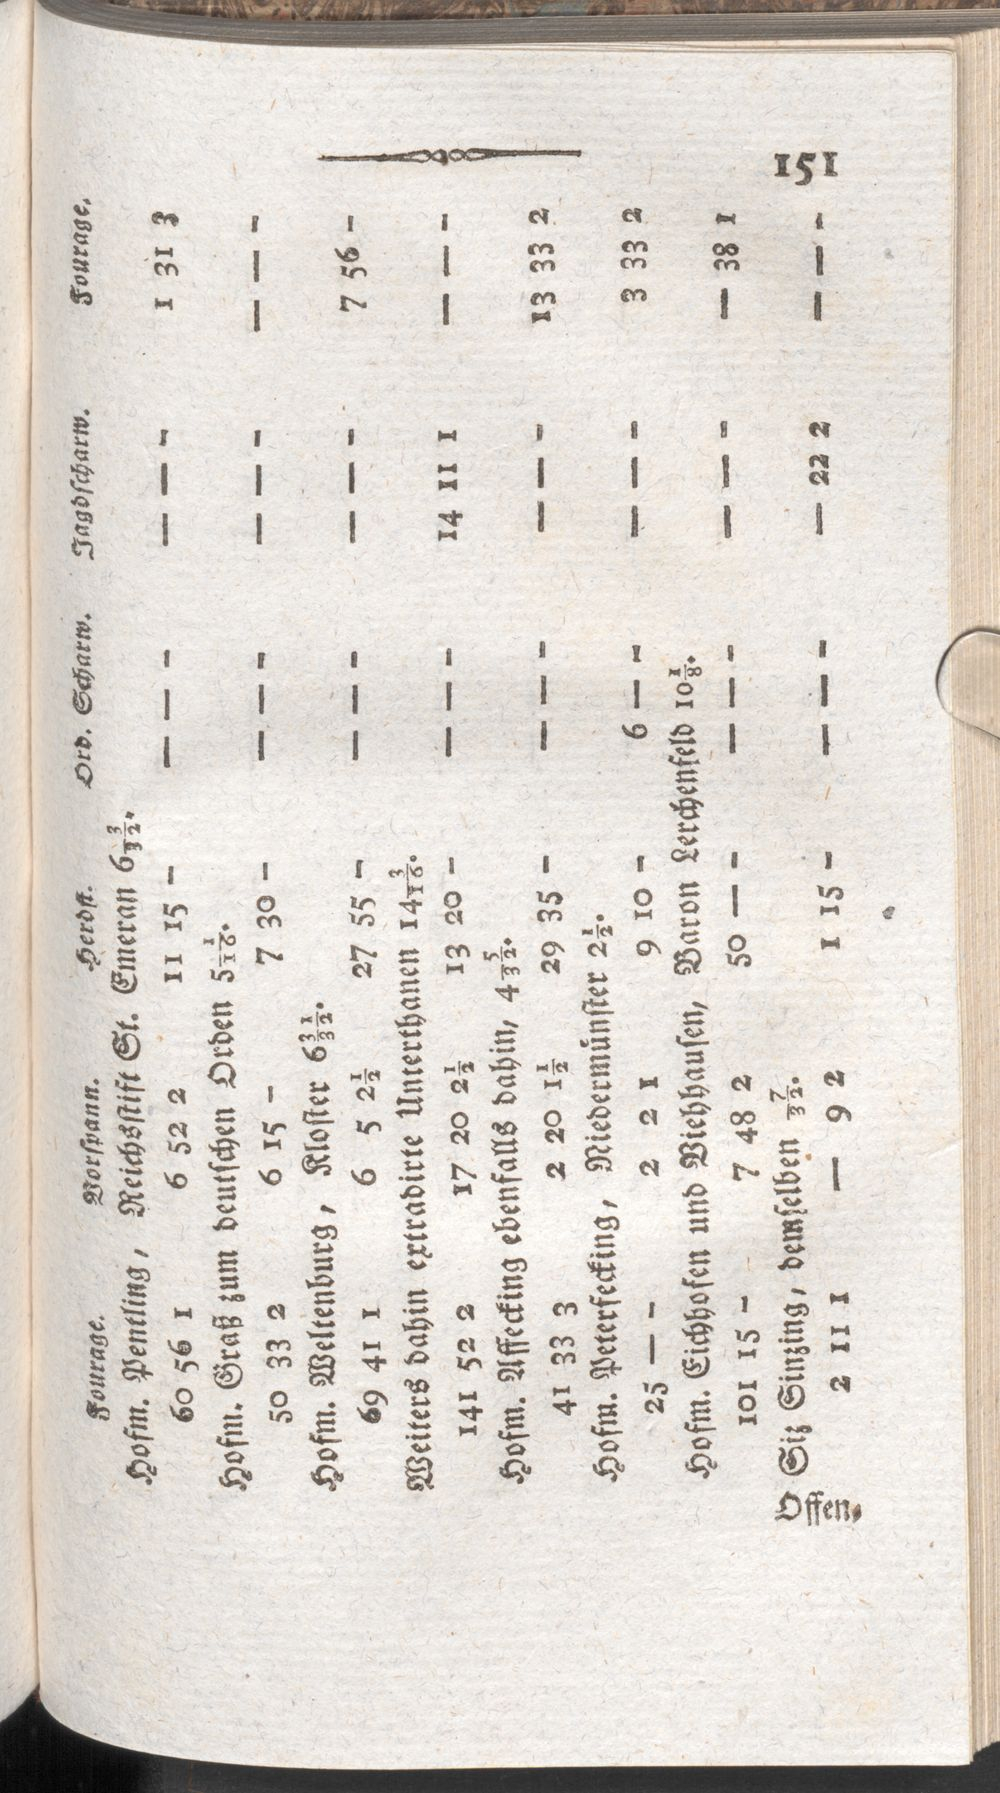 151
Fourage. Vorspann. Herdst. Ord. Scharw. Jagdscharw. Fourage.
Hofm. Pentling, Reichsstift St. Emeran 6 3/32.
60 56 1 6 52 2 11 15 — — — — — — — 1 31 3
Hofm. Graß zum deutschen Orden 5 1/16.
50 33 2 6 15 — 7 30 — — — — — — — — — —
Hofm. Weltenburg, Kloster 6 31/32.
69 41 1 6 5 2½ 27 55 — — — — — — — 7 56 —
Weiters dahin extradirte Unterthanen 14 3/16.
141 52 2 17 20 2½ 13 20 — — — — 14 11 1 — — —
Hofm. Affecking ebenfalls dahin, 4 5/32.
41 33 3 2 20 1½ 29 35 — — — — — — — 13 33 2
Hofm. Petersecking, Niedermünster 2½.
25 — — 2 2 1 9 10 — 6 — — — — — 3 33 2
Hofm. Eichhofen und Viehhausen, Baron Lerchenfeld 10⅛.
101 15 — 7 48 2 50 — — — — — — — — — 38 1
Siz Sinzing, demselben 7/32.
2 11 1 — 9 2 1 15 — — — — — 22 2 — — —
Offen⸗